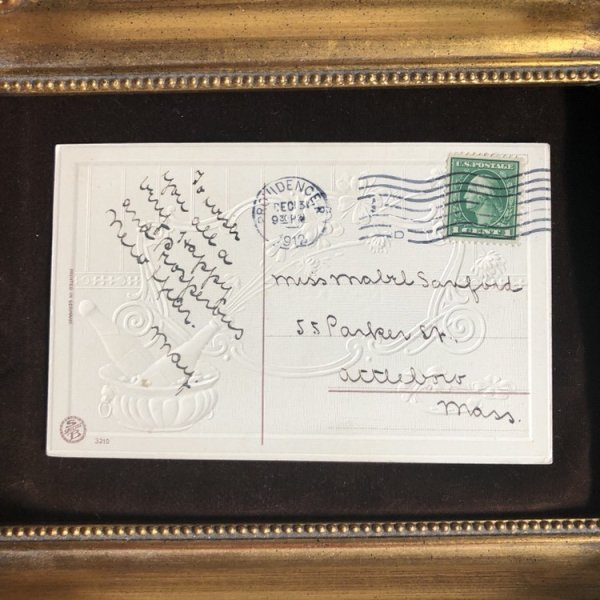 To wish
you all a
very Happy
and Prosperous
New Year.
May.
PROVIDENCE R.
DEC 31
9 30 PM
1912
D
U.S. POSTAGE
1 CENT 1
Miss Mabel Sanford
55 Parker St.
Attleboro
Mass.
PRINTED IN GERMANY
3210